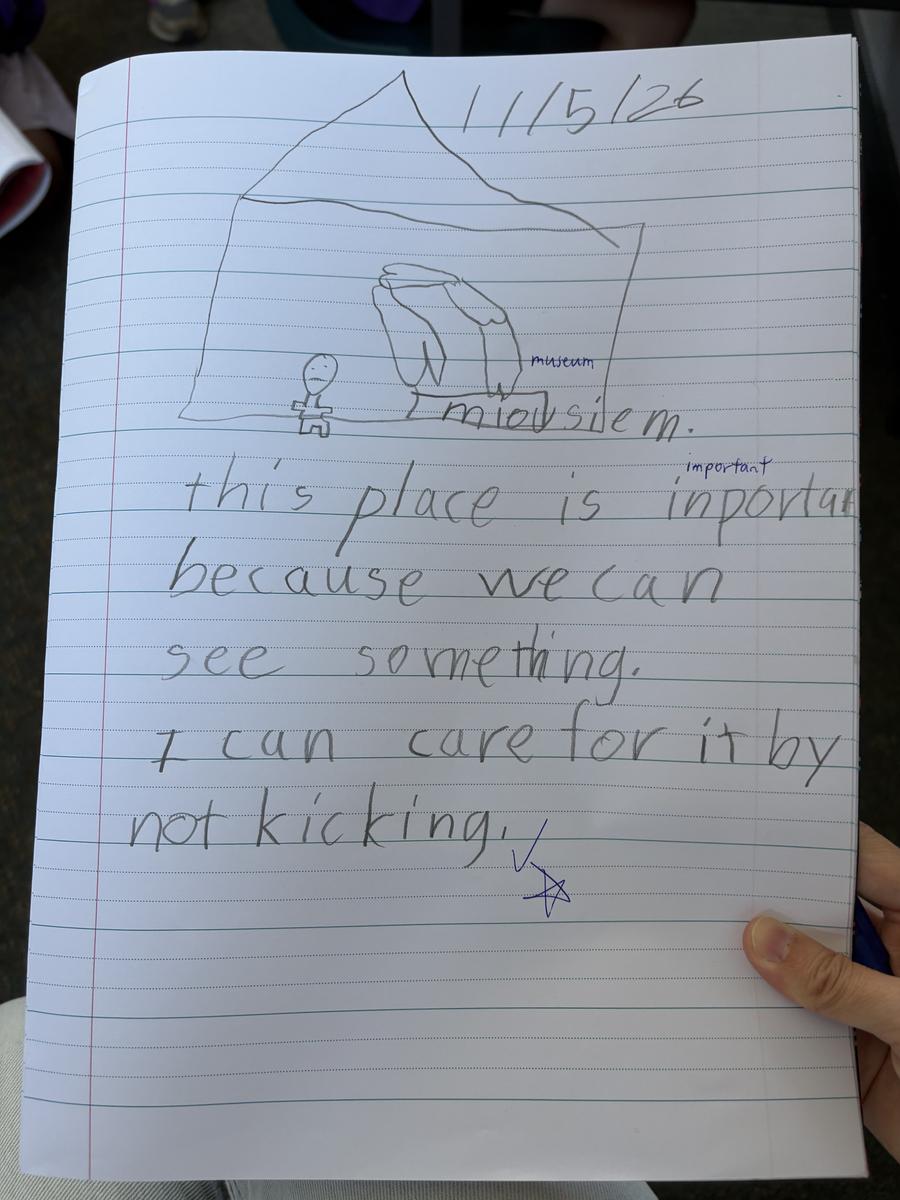 11/5/26
museum
miousiem.
important
this place is inportan
because we can
see something.
I can care for it by
not kicking.